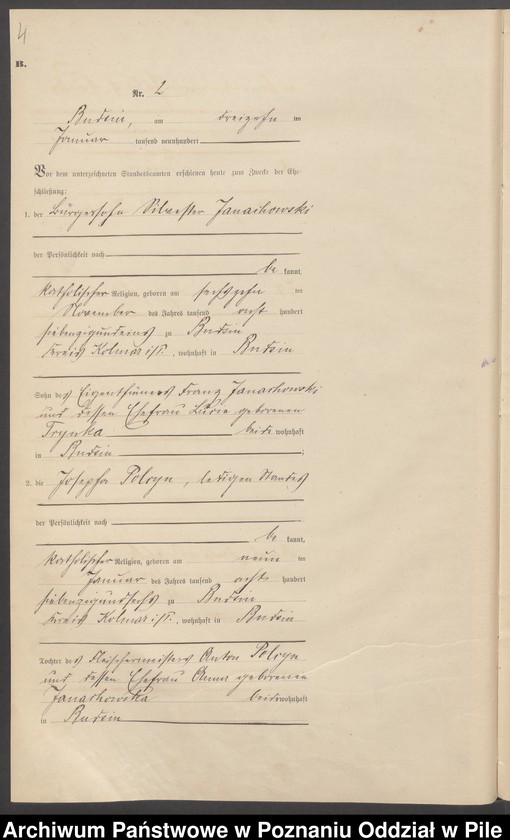 4
B.
Nr. 2
Budsin, am dreizehn ten
Januar tausend neunhundert
Vor dem unterzeichneten Standesbeamten erschienen heute zum Zwecke der Ehe-
schließung:
1. der Bürgersohn Silvester Janaihowski
der Persönlichkeit nach
be kannt,
katholischer Religion, geboren am sechszehn ten
November des Jahres tausend acht hundert
siebenzigundeins zu Budsin
Kreis Kolmar i/P., wohnhaft in Budsin
Sohn des Eigenthümers Franz Janachowski
und dessen Ehefrau Lucie geborenen
Trynka beide wohnhaft
in Budsin;
2. die Josepha Polcyn, ledigen Standes
der Persönlichkeit nach
be kannt,
katholischer Religion, geboren am neun ten
Januar des Jahres tausend acht hundert
siebenzigundsechs zu Budsin
Kreis Kolmar i/P., wohnhaft in Budsin
Tochter des Fleischermeisters Anton Polcyn
und dessen Ehefrau Anna geborenen
Janachowska beide wohnhaft
in Budsin
Archiwum Państwowe w Poznaniu Oddział w Pile